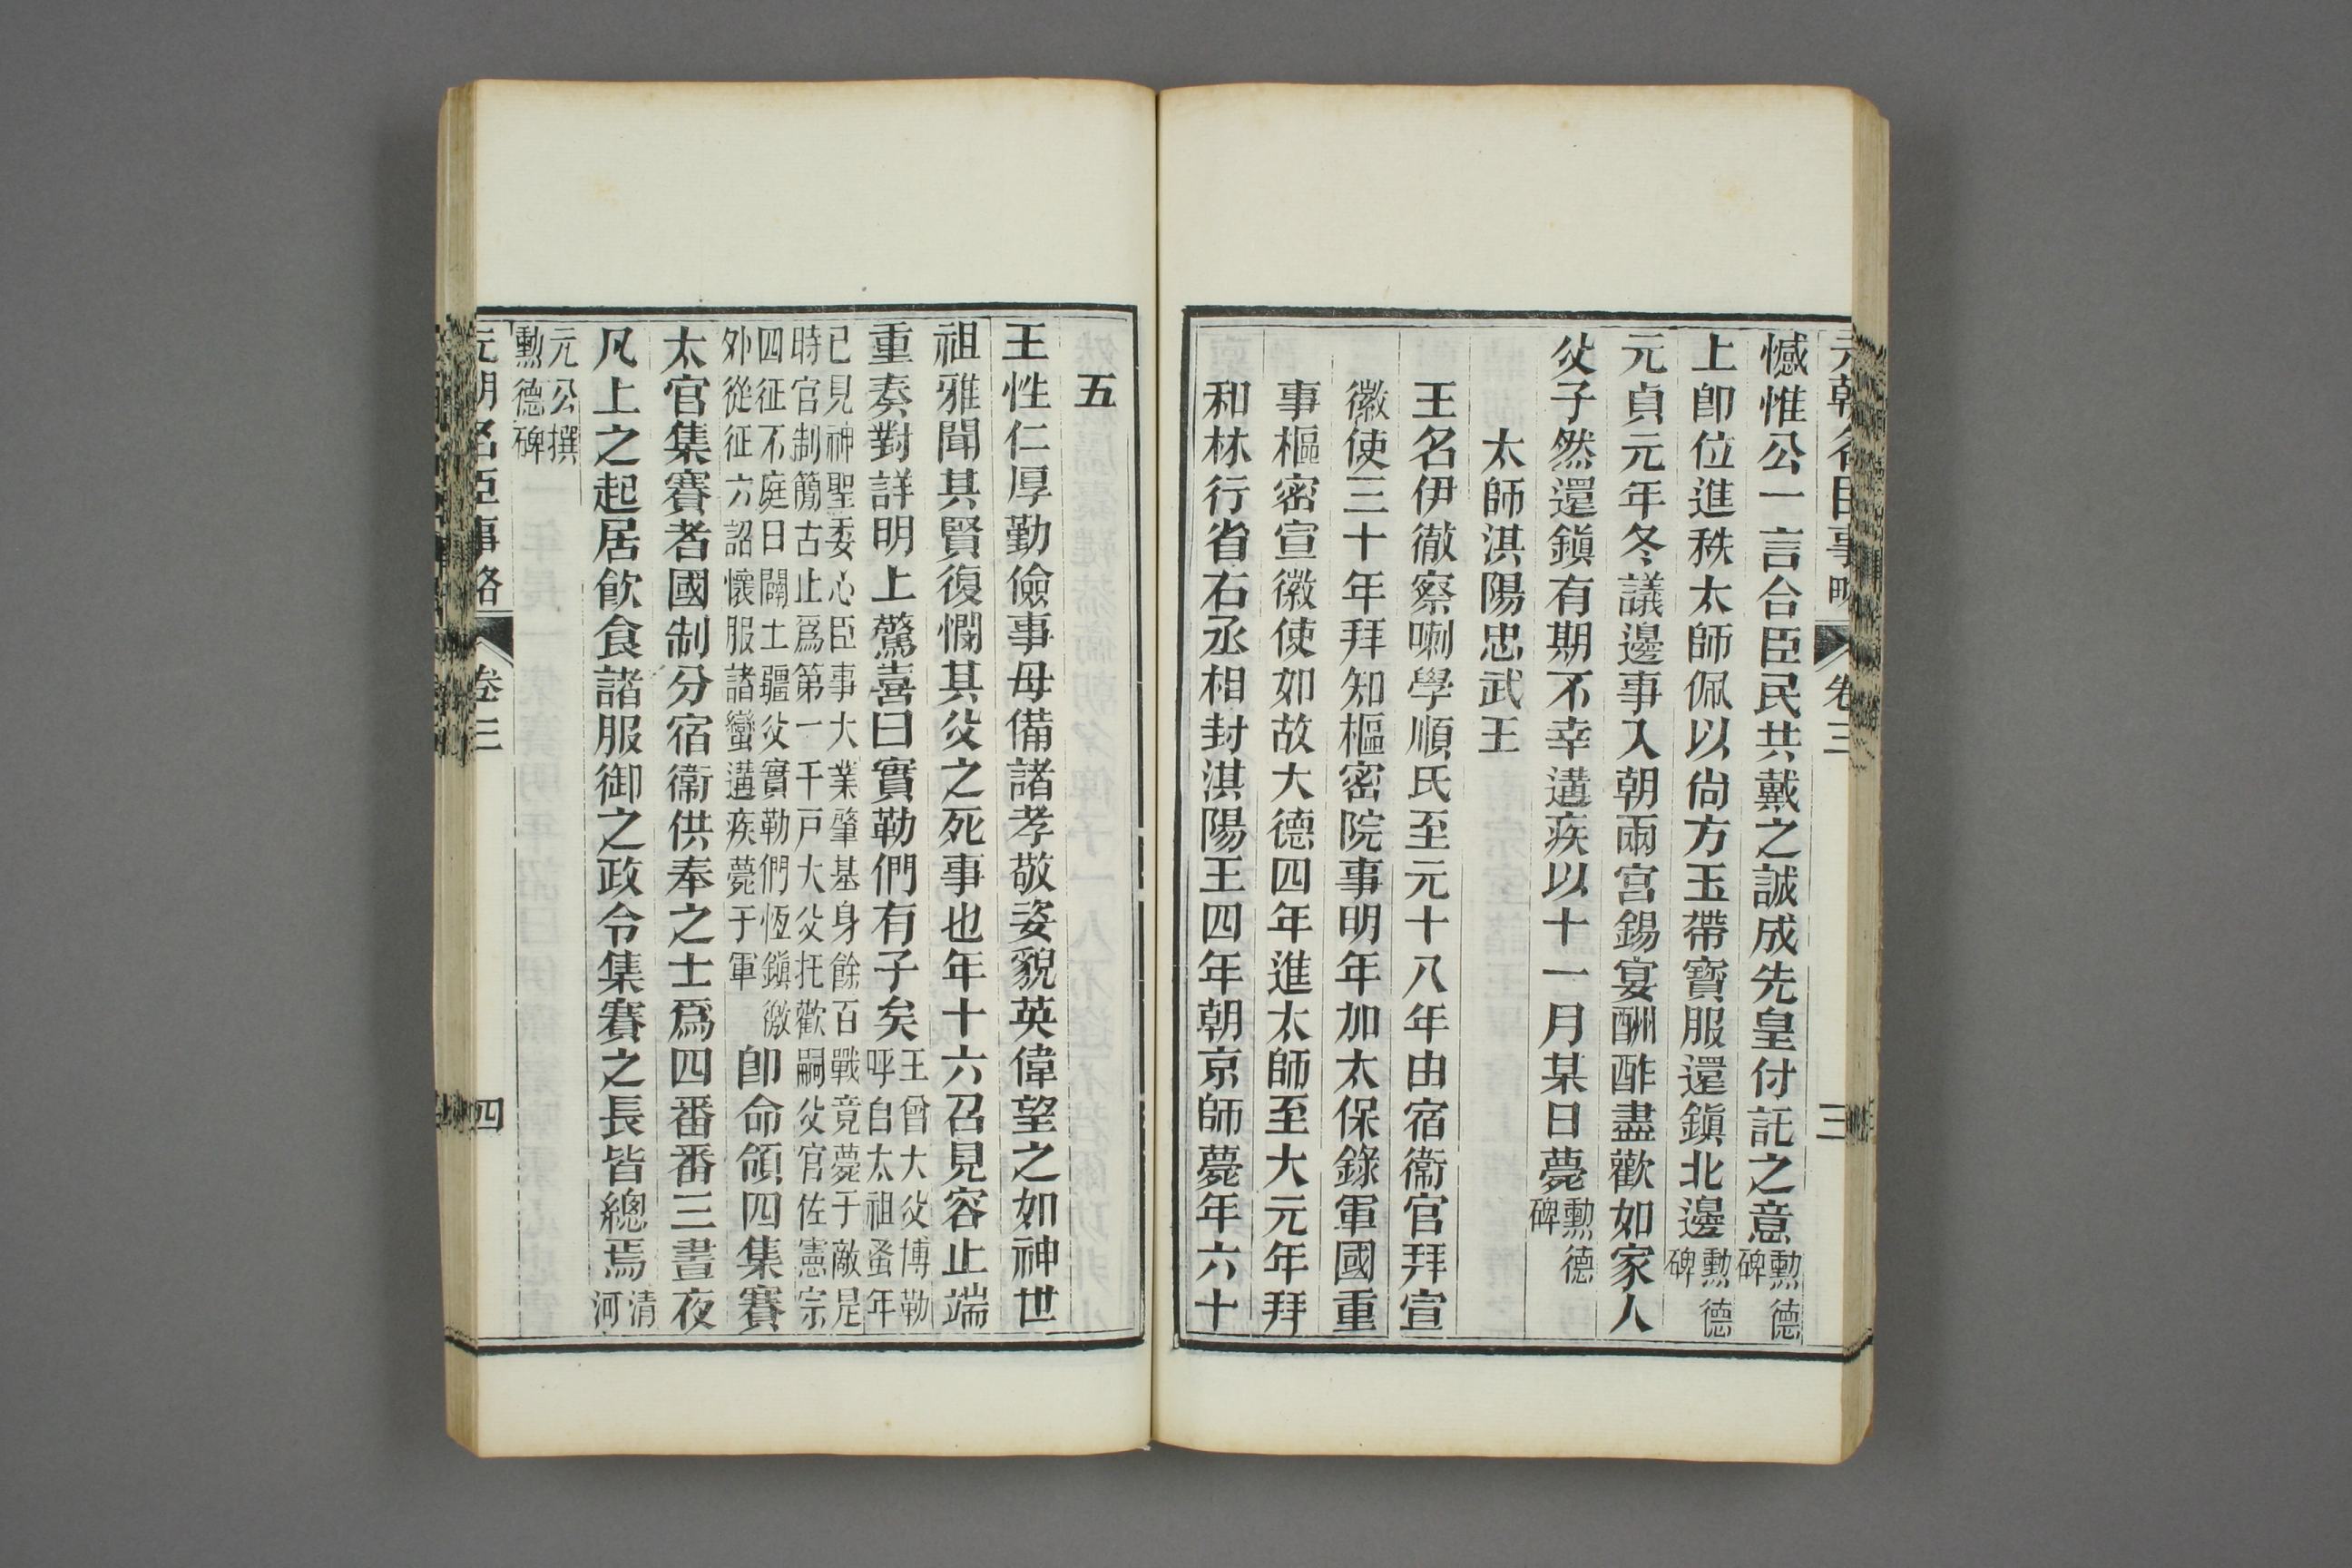 元朝名臣事略 卷三 三
憾惟公一言合臣民共戴之誠成先皇付託之意勳德碑
上卽位進秩太師佩以尙方玉帶寶服還鎭北邊勳德碑
元貞元年冬議邊事入朝兩宮錫宴酬酢盡歡如家人
父子然還鎭有期不幸遘疾以十一月某日薨勳德碑
太師淇陽忠武王
王名伊徹察喇學順氏至元十八年由宿衞官拜宣
徽使三十年拜知樞密院事明年加太保錄軍國重
事樞密宣徽使如故大德四年進太師至大元年拜
和林行省右丞相封淇陽王四年朝京師薨年六十
五
王性仁厚勤儉事母備諸孝敬姿貌英偉望之如神世
祖雅聞其賢復憫其父之死事也年十六召見容止端
重奏對詳明上驚喜曰實勒們有子矣王曾大父博勒呼自太祖蚤年
已見神聖委心臣事大業肇基身餘百戰竟薨于敵是
時官制簡古止爲第一千戸大父托歡嗣父官佐憲宗
四征不庭日闢土疆父實勒們恆鎭徼
外從征六詔懷服諸蠻遘疾薨于軍卽命領四集賽
太官集賽者國制分宿衞供奉之士爲四番番三晝夜
凡上之起居飮食諸服御之政令集賽之長皆總焉清河
元公撰
勳德碑
元朝名臣事略 卷三 四